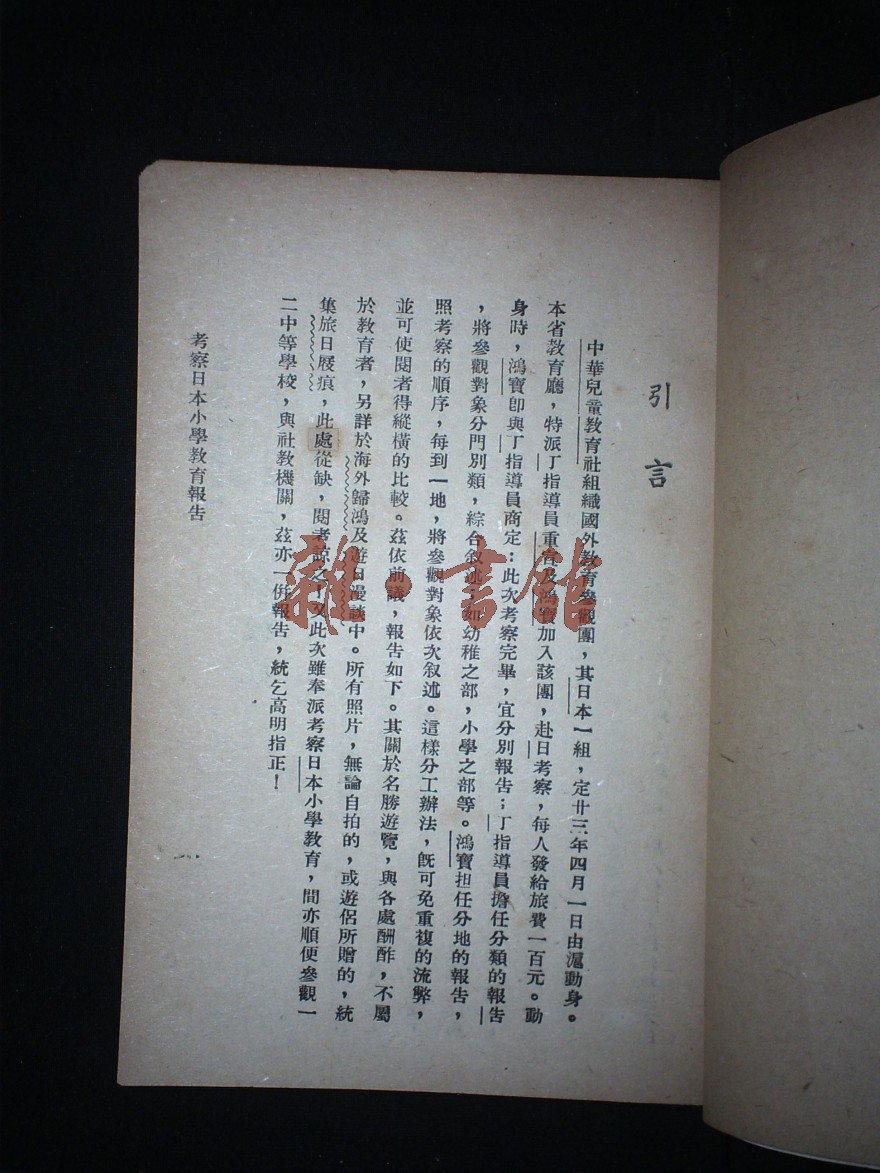 引言
中華兒童教育社組織國外教育參觀團，其日本一組，定廿三年四月一日由滬動身。
本省教育廳，特派丁指導員重宣及鴻寶加入該團，赴日考察，每人發給旅費一百元。動
身時，鴻寶卽與丁指導員商定：此次考察完畢，宜分別報告；丁指導員擔任分類的報告
，將參觀對象分門別類，綜合叙述；如幼稚之部，小學之部等。鴻寶担任分地的報告，
照考察的順序，每到一地，將參觀對象依次叙述。這樣分工辦法，旣可免重複的流弊，
並可使閱者得縱橫的比較。茲依前議，報告如下。其關於名勝遊覽，與各處酬酢，不屬
於教育者，另詳於海外歸鴻及遊日漫談中。所有照片，無論自拍的，或遊侶所贈的，統
集旅日屐痕，此處從缺，閱者諒之！又此次雖奉派考察日本小學教育，間亦順便參觀一
二中等學校，與社教機關，茲亦一併報告，統乞高明指正！
考察日本小學教育報告
雜·書館